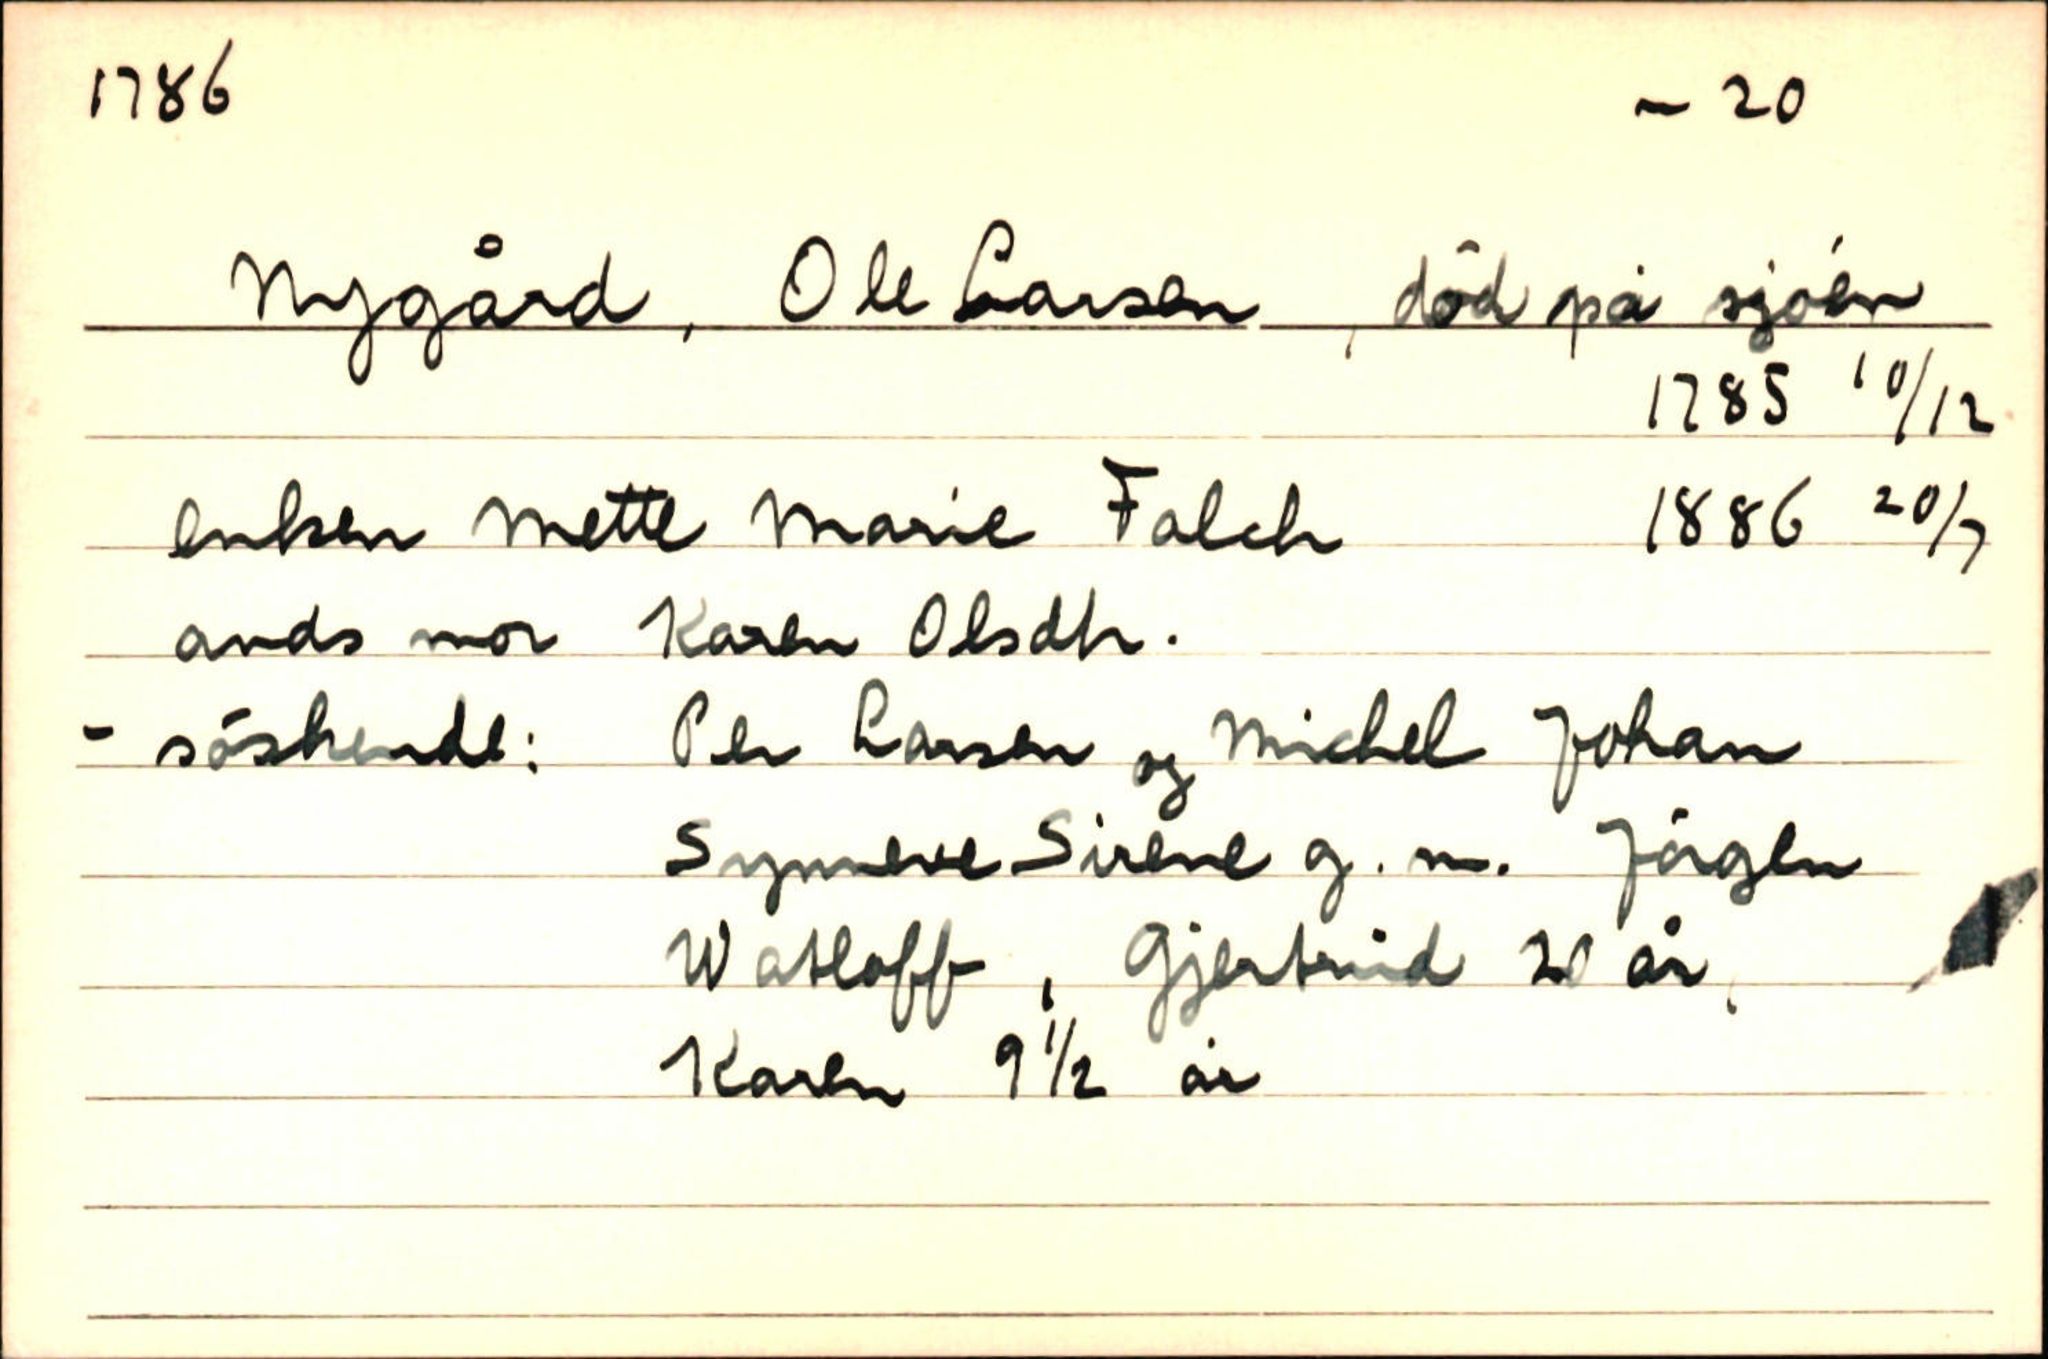 1786 - 20
Nygård, Ole Larsen, död på sjöen
1785 10/12
enken Mette Marie Falch 1886 20/7
avds mor Karen Olsdtr.
- söskende: Per Larsen og Michel Johan
Synneve Sirene g. m. Jörgen
Watloff, Gjertrud 20 år,
Karen 9 1/2 år